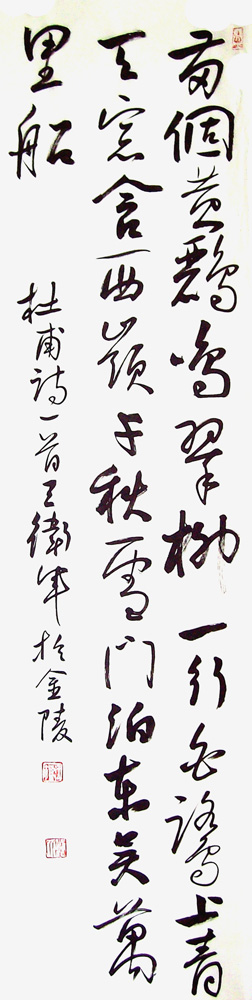 兩個黃鸝鳴翠柳一行白鷺上青
天窗含西嶺千秋雪門泊東吳萬
里船
杜甫詩一首王衛軍於金陵